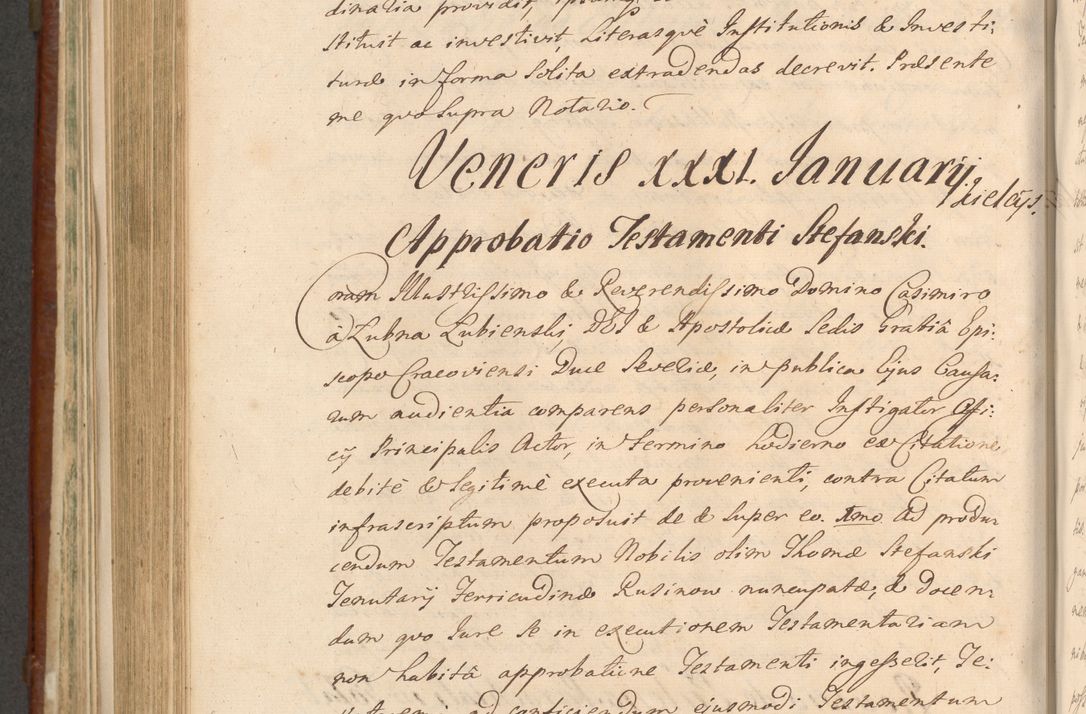 dinaria providit,
stituit ac investivit, Literasquè Institutionis & Investi:
turæ in forma Solita extradendas decrevit. Præsente
me quo Supra Notario.
Veneris XXXI. Januarij.
Kielcijs.
Approbatio Testamenti Stefanski.
Coram Illustrissimo & Reverendissimo Domino Casimiro
à Lubna Lubienski, DEI & Apostolicæ Sedis Gratiâ Epi:
scopo Cracoviensi Duce Severiæ, in publica Ejus Causa:
rum audientia comparens personaliter Instigator Offi:
cij Principalis Actor, in termino hodierno ex Citatione
debitè & legitimè executa provenienti, contra Citatum
infrascriptum proposuit de & super eo. Imo Ad produ:
cendum Testamentum Nobilis olim Thomæ Stefanski
Tenutarij Terricudinæ Rusinow nuncupatæ; & docen:
dum quo Jure se in executionem Testamentariam
non habitâ approbatiune Testamenti ingesserit, Te:
ad conficiendum ejusmodi Testamentum